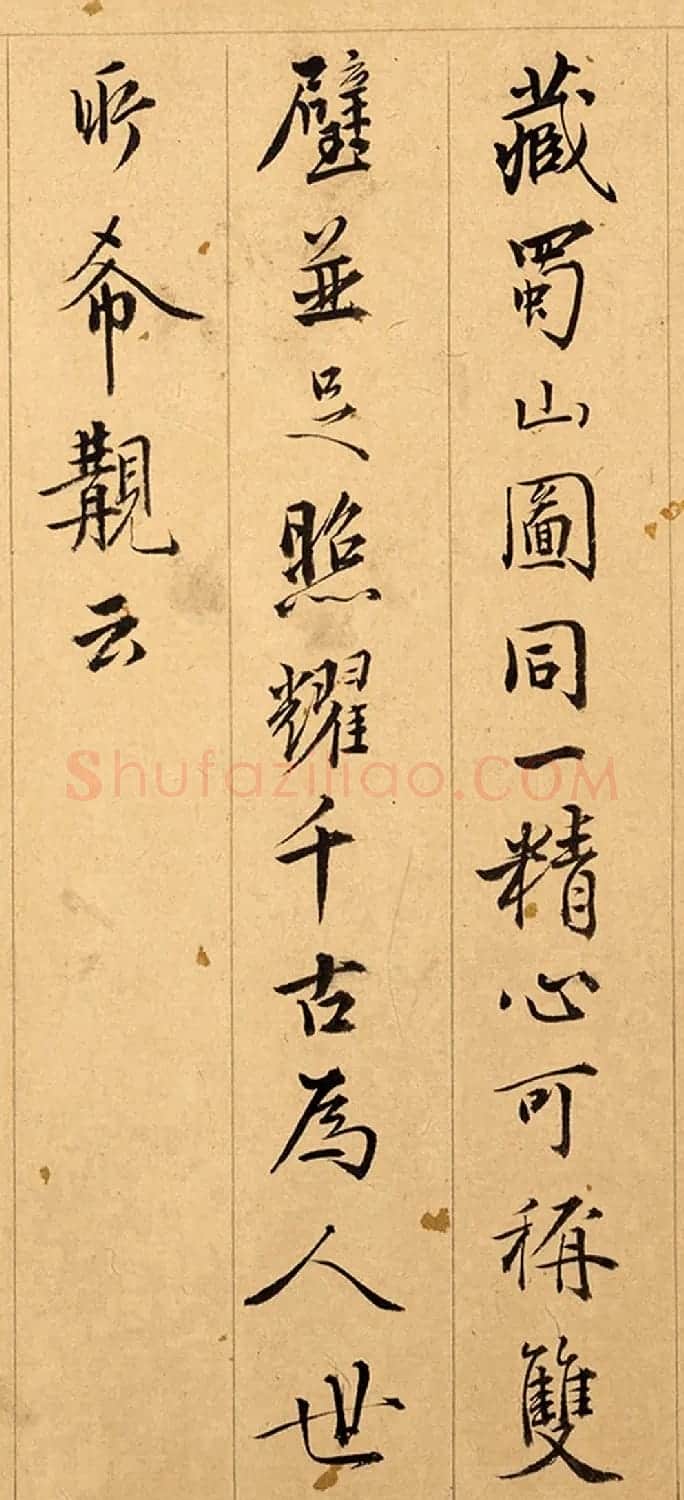 藏蜀山圖同一精心可稱雙
璧並足照耀千古為人世
所希覯云
Shufaziliao.COM